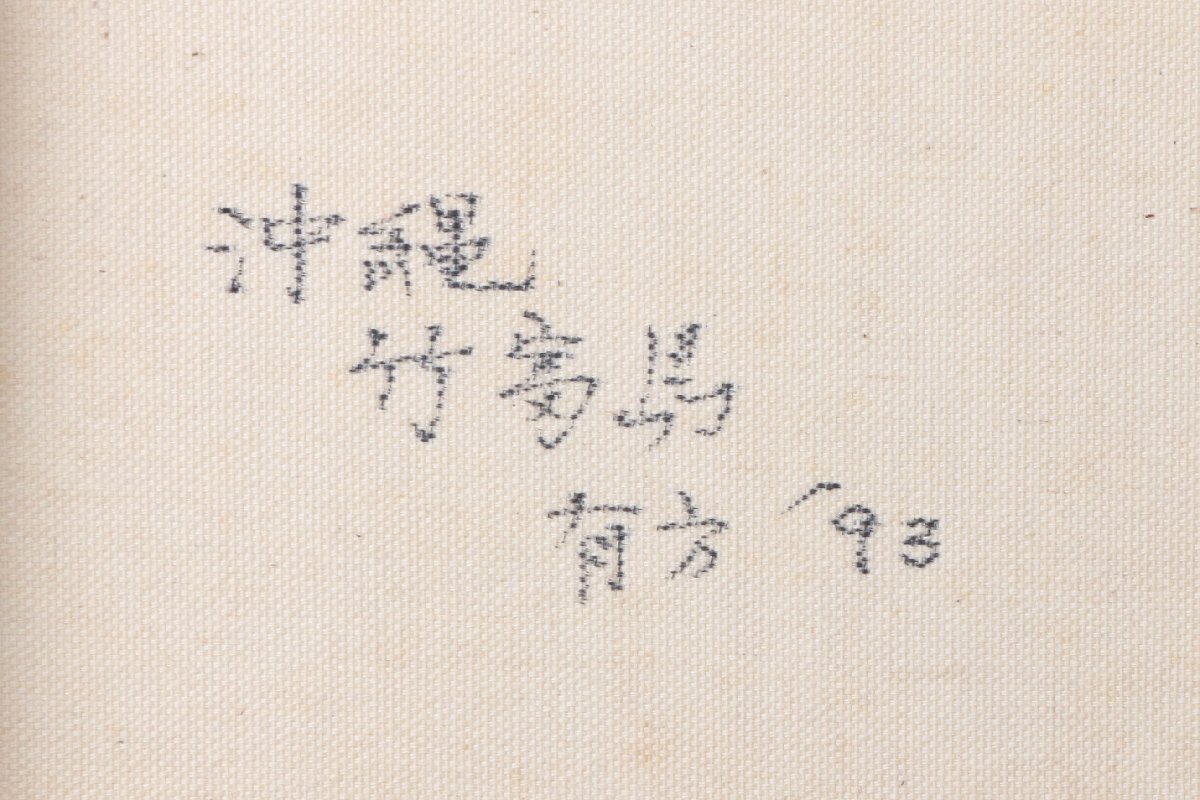 沖縄
竹富島
有方 '93